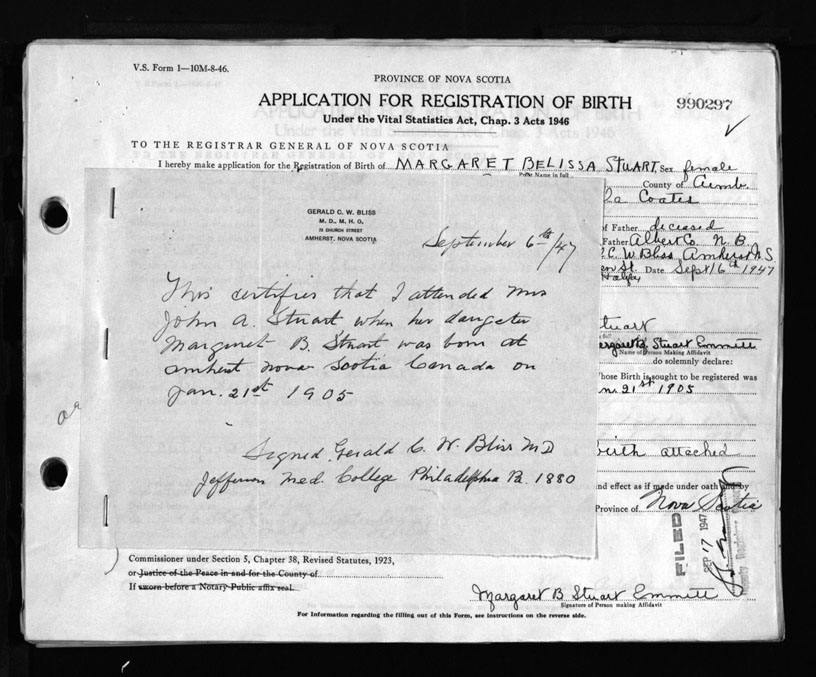 V.S. Form 1—10M-8-46.
PROVINCE OF NOVA SCOTIA
APPLICATION FOR REGISTRATION OF BIRTH
990297
Under the Vital Statistics Act, Chap. 3 Acts 1946
TO THE REGISTRAR GENERAL OF NOVA SCOTIA
I hereby make application for the Registration of Birth of MARGARET BELISSA STUART, Sex female
Print Name in full
County of Cumb
Coates
GERALD C. W. BLISS
M. D., M. H. O.
75 CHURCH STREET
AMHERST, NOVA SCOTIA
September 6th/47
This certifies that I attended Mrs
John A. Stuart when her daugeter
Margaret B. Stuart was born at
Amherst Nova Scotia Canada on
Jan. 21st 1905
Signed Gerald C. W. Bliss MD
Jefferson Med. College Philadelphia Pa. 1880
of Father deceased
Father Albert Co. N. B.
C. W. Bliss Amherst N.S.
St. Date Sept 16th 1947
Halifax
Stuart
Margaret B. Stuart Emmett
Name of Person Making Affidavit
do solemnly declare:
whose Birth is sought to be registered was
21st 1905
birth attached
and effect as if made under oath and by
Province of Nova Scotia
FILED
SEP 17 1947
Commissioner under Section 5, Chapter 38, Revised Statutes, 1923,
or Justice of the Peace in and for the County of
If sworn before a Notary Public affix seal.
Margaret B Stuart Emmett
Signature of Person making Affidavit
For Information regarding the filling out of this Form, see instructions on the reverse side.